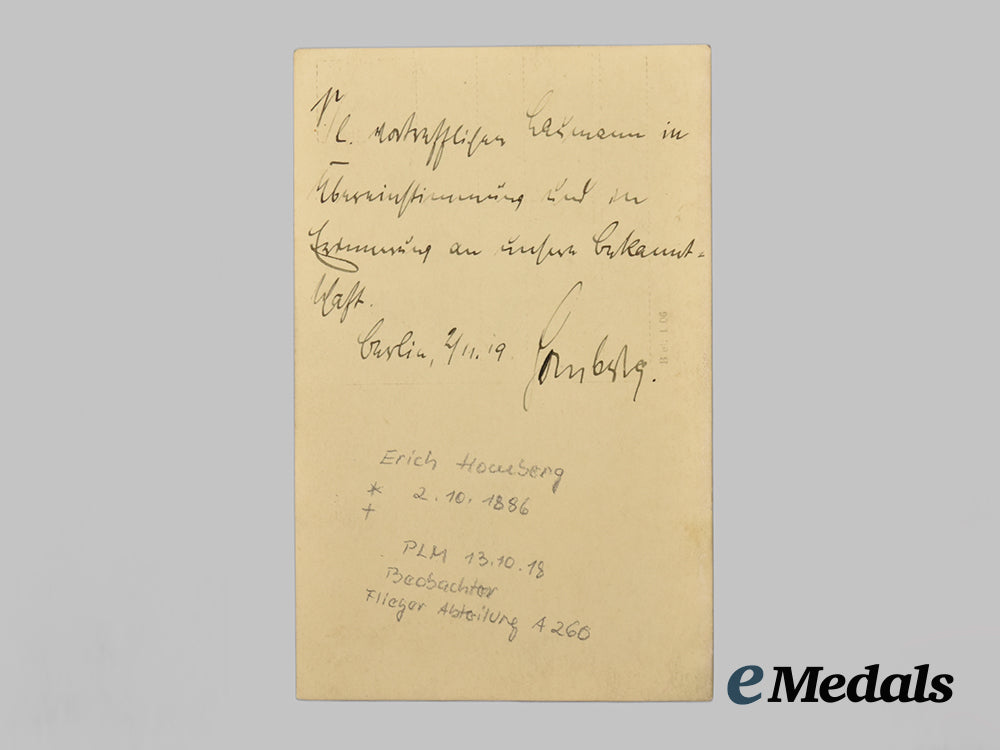 vortrefflichen in
Übereinstimmung und in
Erinnerung an unsere Bekannt-
schaft.
Berlin, 2/11.19. Homberg.
Erich Homberg
* 2.10.1886
+
PLM 13.10.18
Beobachter
Flieger Abteilung A 260
e Medals